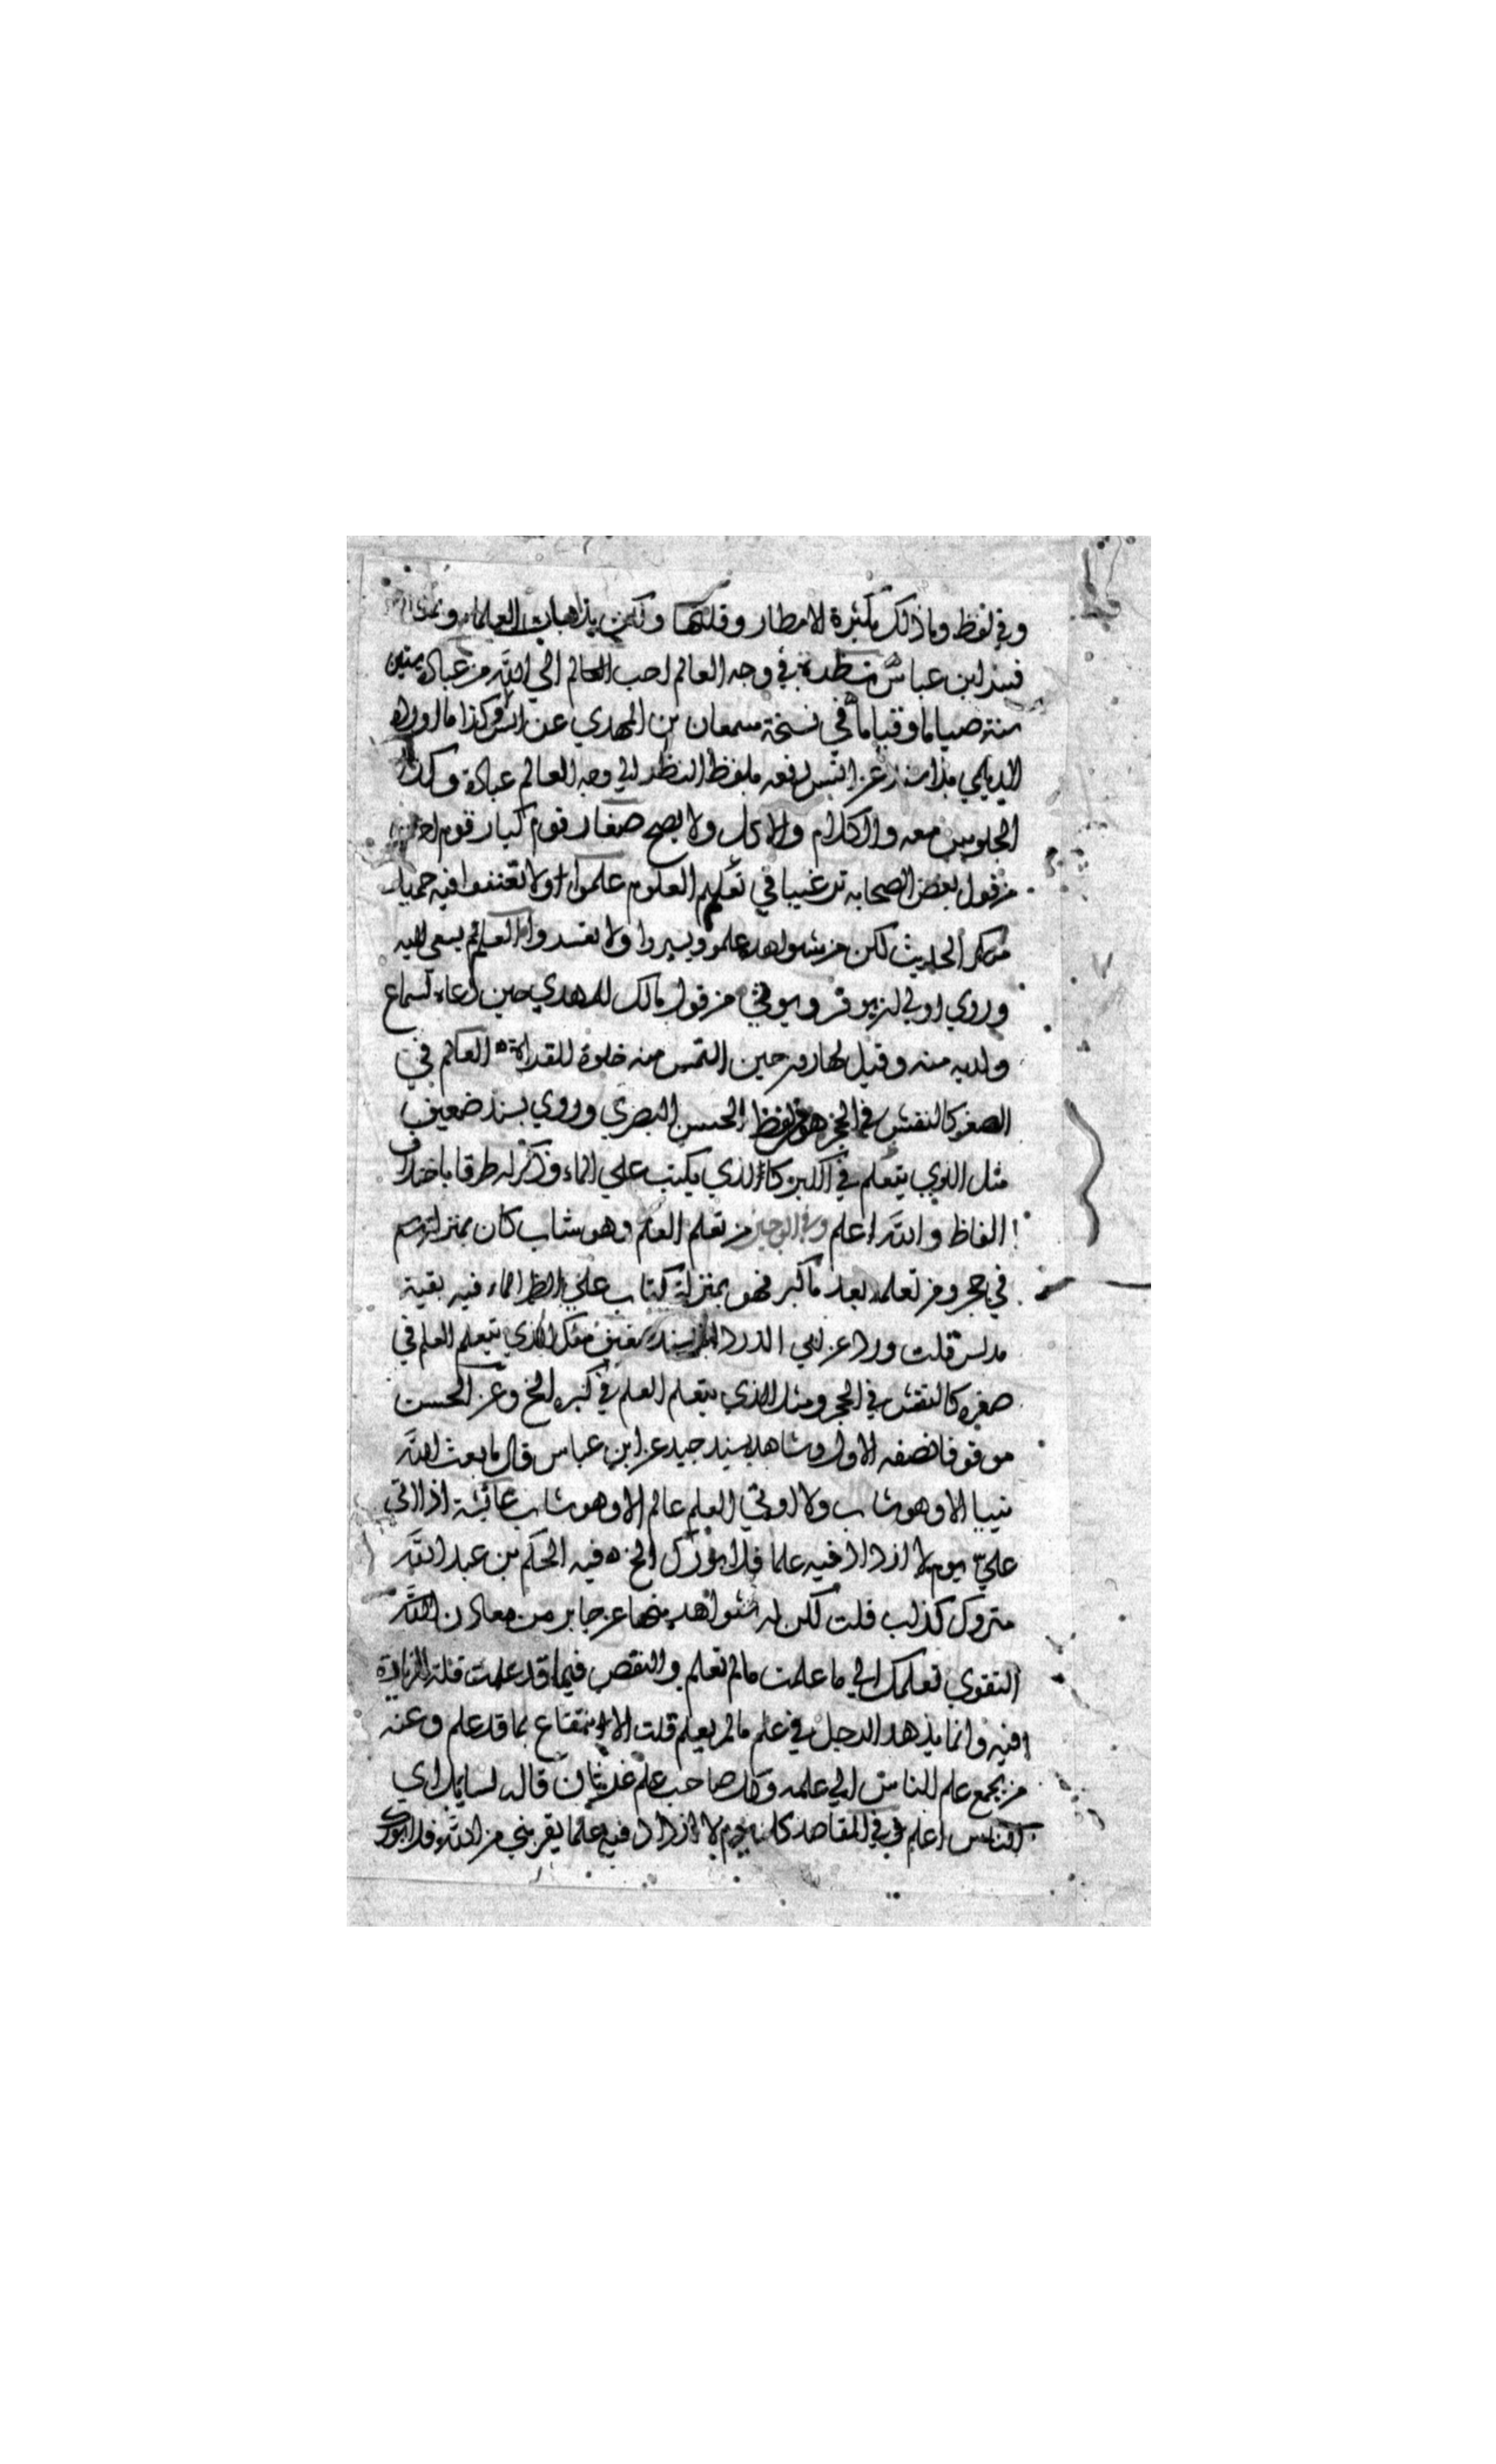 وفي لفظ وما ذلك بكثرة الامطار وقلتها ولكن بذهاب العلماء
فسد ابن عباس نظرة في وجه العالم احب الي الله من عبادة ستين
سنة صياما وقياما في نسخة سمعان بن المهدي عن انس وكذا ما اورده
الديلمي بلا سند عن انس رفعه بلفظ النظر الي وجه العالم عبادة وكذا
الجلوس معه والكلام والاكل ولا يصح صغار قوم كبار قوم اخرين
من قول بعض الصحابه ترغيبا في تعليم العلوم علموا ولا تعنفوا فيه حميد
منكر الحديث لكن من شواهده علموا ويسروا ولا تعسروا العالم يسعي اليه
وروي اولي ان يوقر ويوتي من قول مالك للمهدي حين دعاه لسماع
ولديه منه وقيل لهارون حين التمس منه خلوة للقراة العلم في
الصغر كالنقش في الحجر هو من لفظ الحسن البصري وروي بسند ضعيف
مثل الذي يتعلم في الكبر كالذي يكتب علي الماء وذكر له طرقا باختلاف
الفاظ والله اعلم وفي الوجيز من تعلم العلم وهو شاب كان بمنزلة وسم
في حجر ومن تعلمه بعد ما كبر فهو بمنزلة كتاب علي ظهر الماء فيه بقية
مدلس قلت ورد عن ابي الدردا بسند ضعيف مثل الذي يتعلم العلم في
صغره كالنقش في الحجر ومثل الذي يتعلم العلم في كبره الخ وعن الحسن
موقوفا نصفه الاول وشاهده بسند جيد عن ابن عباس قال ما بعث الله
نبيا الا وهو شاب ولا اوتي العلم عالم الا وهو شاب عائشة اذا اتي
علي يوم لا ازداد فيه علما فلا بورك الخ فيه الحكم بن عبد الله
متروك كذاب قلت لكن له شواهد منها عن جابر من معادن الله
التقوي تعلمك الي ما علمت ما لم تعلم والنقص فيما قد علمت قلة الزيادة
فيه وانما يزهد الرجل في علم ما لم يعلم قلت الانتفاع بما قد علم وعنه
من يجمع علم الناس الي علمه وكل صاحب علم غرثان قاله لسايل اي
الناس اعلم في المقاصد كل يوم لا ازداد فيه علما يقربني من الله فلا بورك